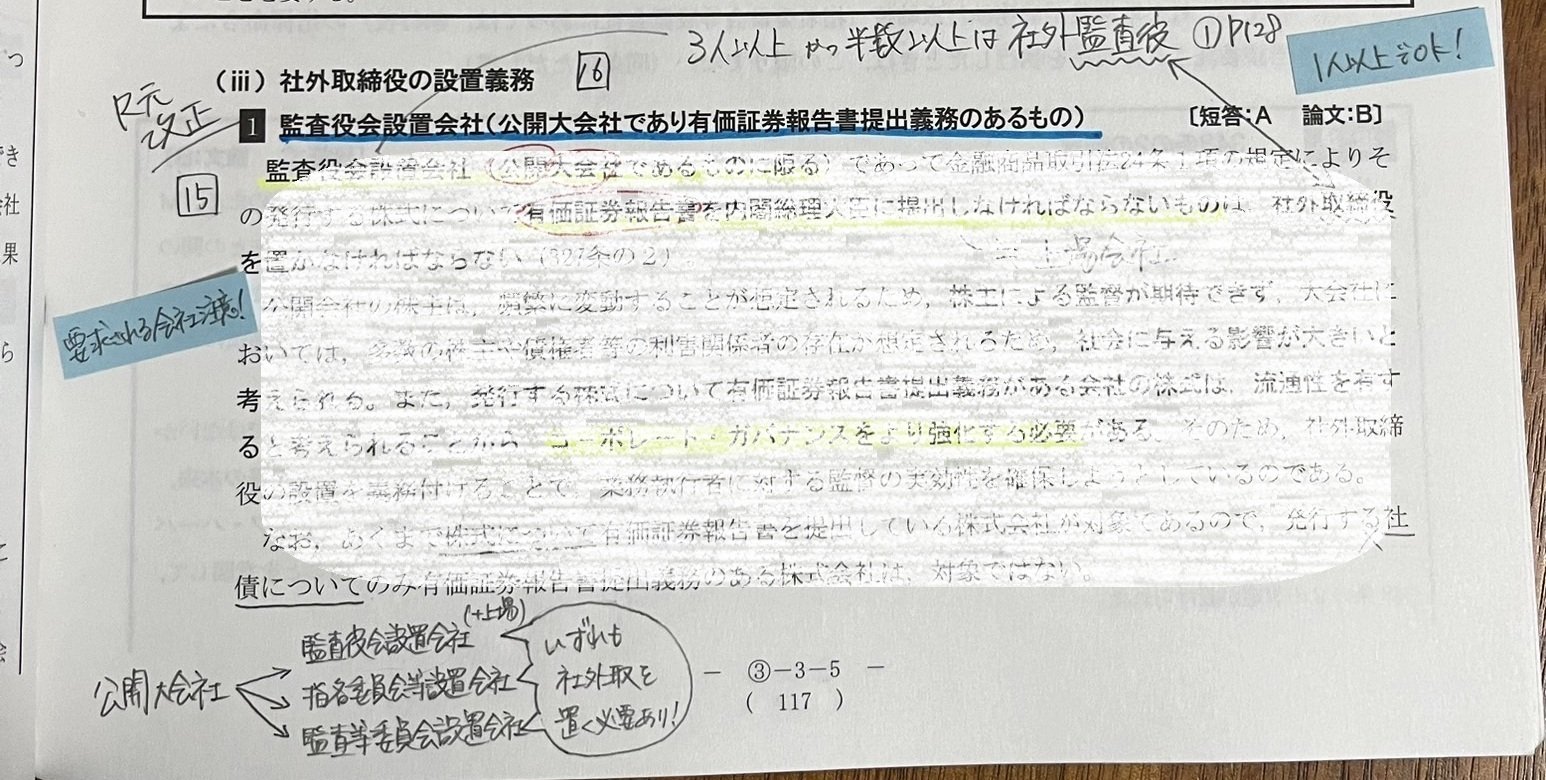 3人以上 かつ 半数以上は 社外監査役 ①P128
1人以上でOK!
(ⅲ) 社外取締役の設置義務 16
R元改正
1 監査役会設置会社(公開大会社であり有価証券報告書提出義務のあるもの) 〔短答:A 論文:B〕
15
監査役会設置会社(公開大会社であるものに限る)であって金融商品取引法24条1項の規定によりそ
の発行する株式について有価証券報告書を内閣総理大臣に提出しなければならないものは,社外取締役
を置かなければならない(327条の2)
= 上場会社
公開会社の株主は,頻繁に変動することが想定されるため,株主による監督が期待できず,大会社に
要求される会社注意!
おいては,多数の株主や債権者等の利害関係者の存在が想定されるため,社会に与える影響が大きいと
考えられる。また,発行する株式について有価証券報告書提出義務がある会社の株式は,流通性を有す
ると考えられることから,コーポレート・ガバナンスをより強化する必要がある。そのため,社外取締
役の設置を義務付けることで,業務執行者に対する監督の実効性を確保しようとしているのである。
なお,あくまで株式について有価証券報告書を提出している株式会社が対象であるので,発行する社
債についてのみ有価証券報告書提出義務のある株式会社は,対象ではない。
公開大会社
監査役会設置会社(+上場)
指名委員会等設置会社
監査等委員会設置会社
いずれも
社外取を
置く必要あり!
- ③-3-5 -
( 117 )